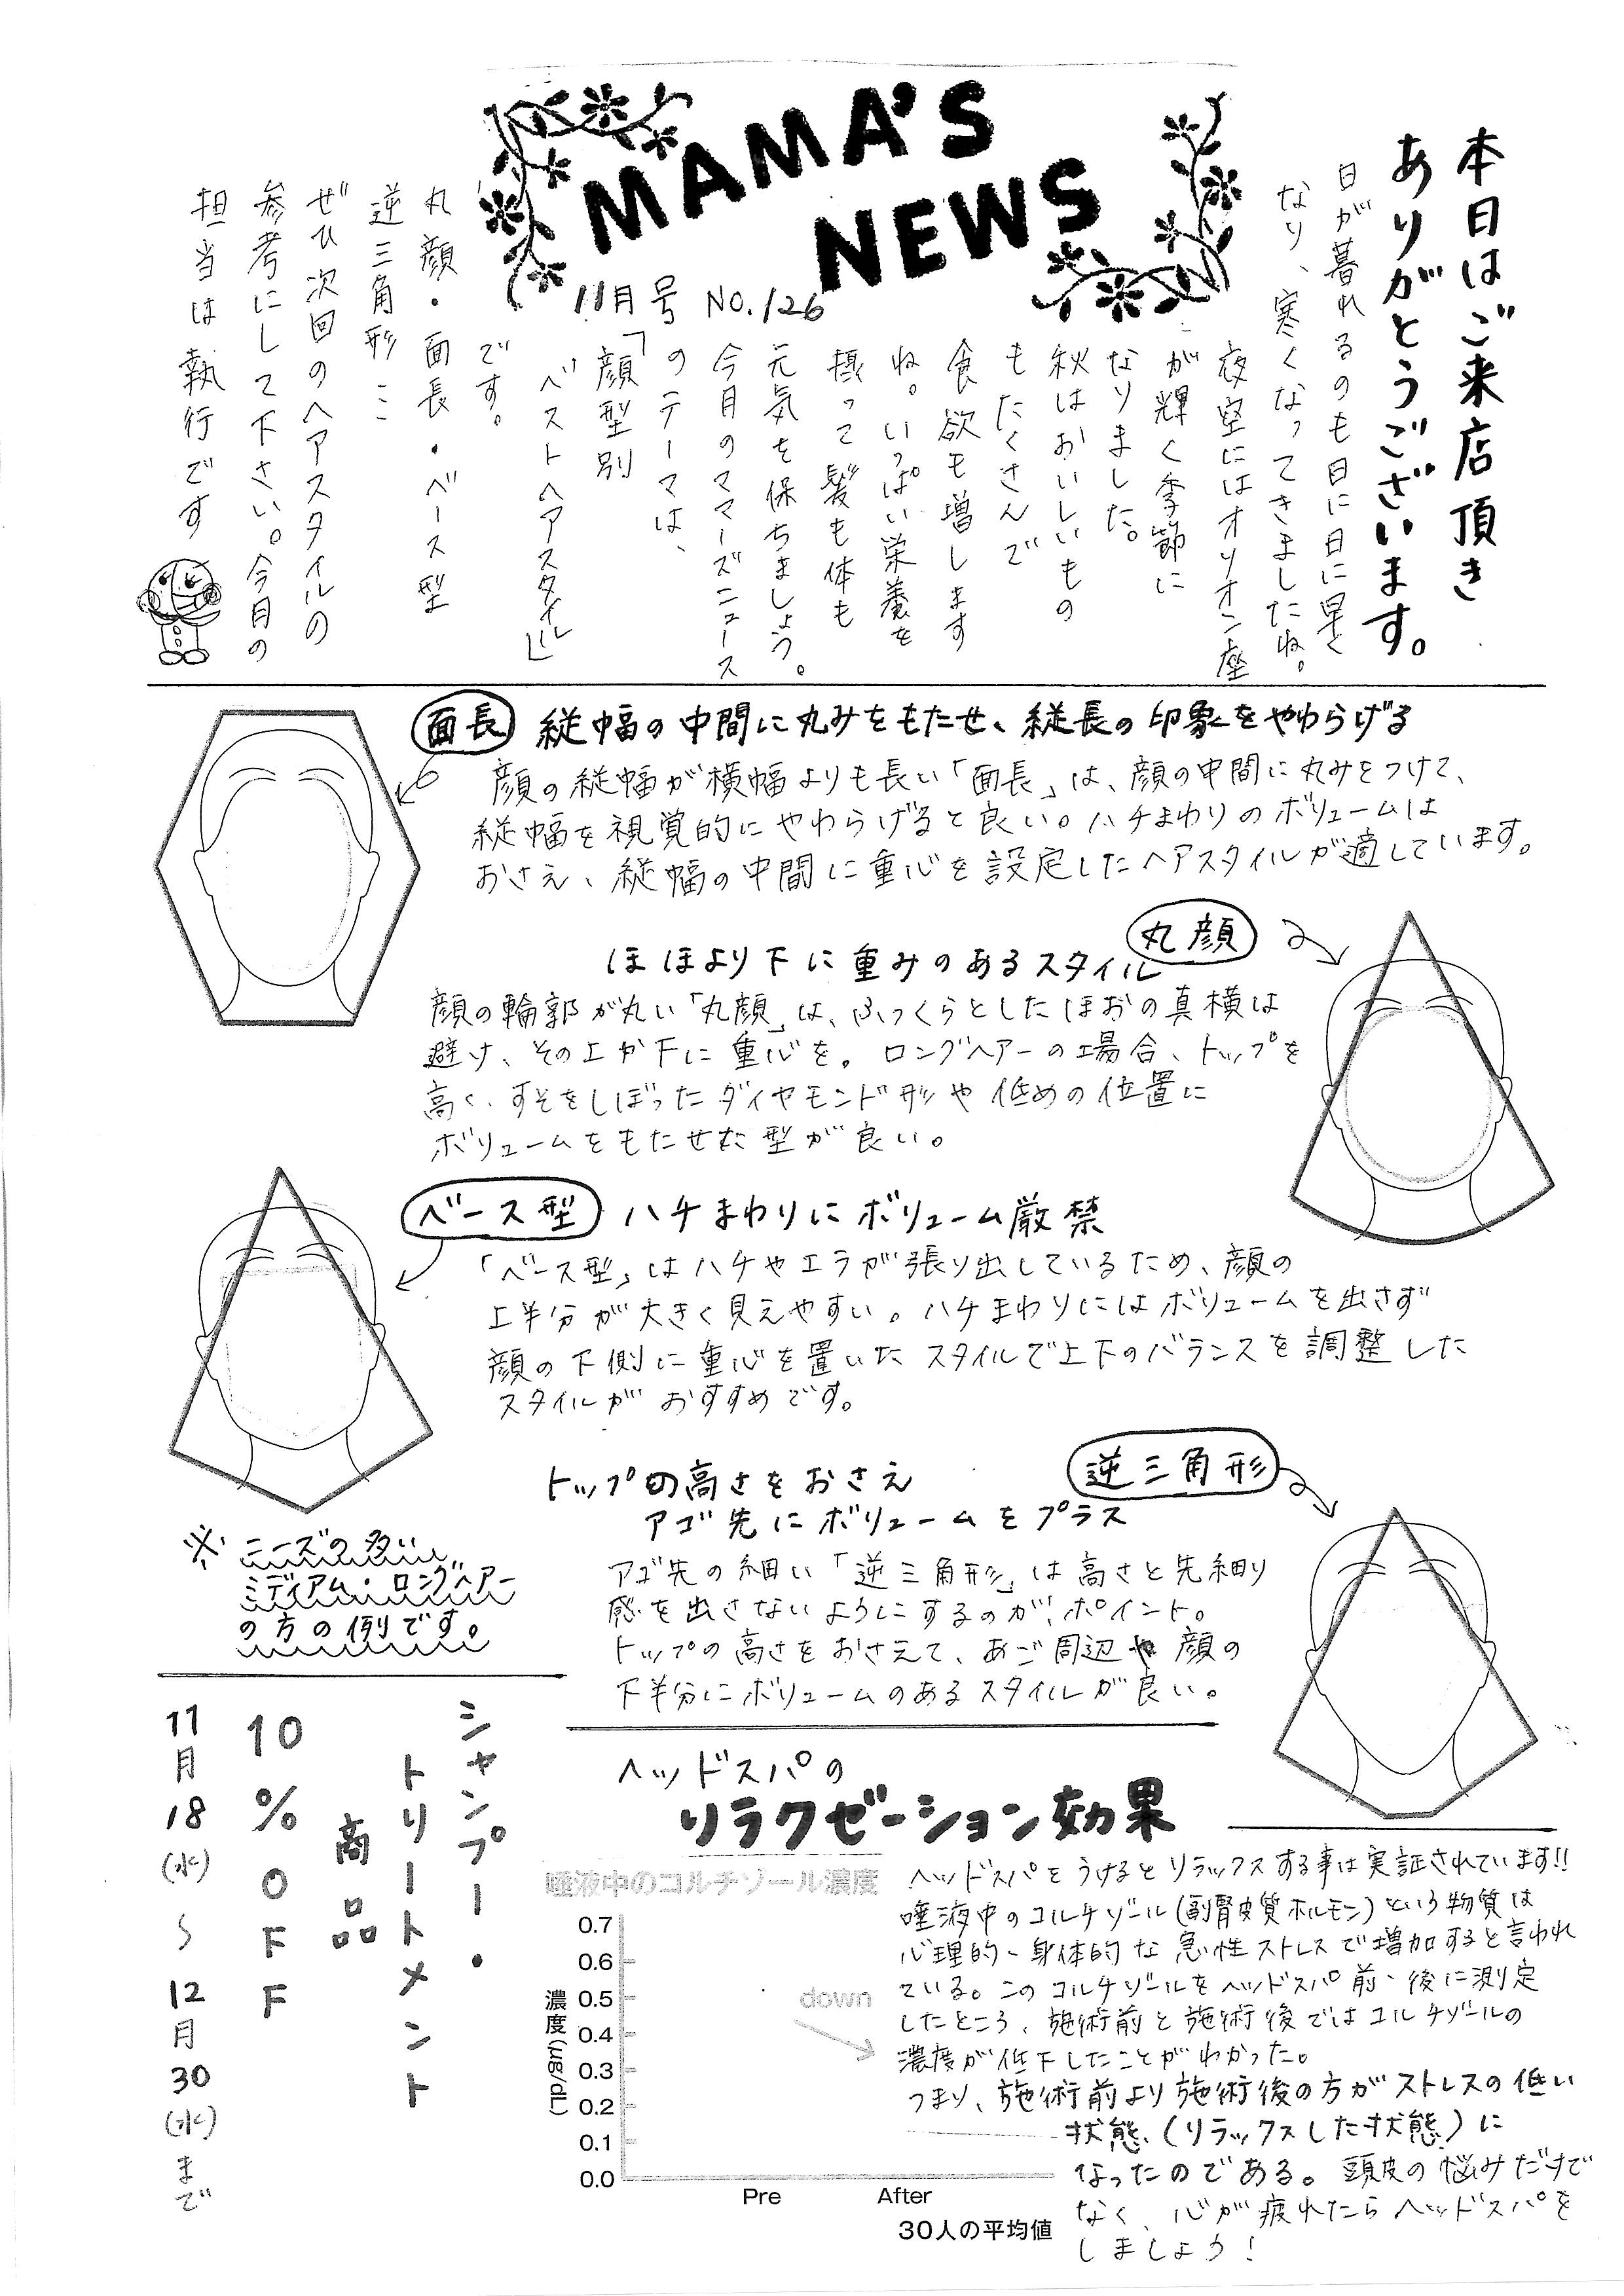 MAMA'S
NEWS
11月号 NO.126
本日はご来店頂き
ありがとうございます。
日が暮れるのも日に日に早く
なり、寒くなってきましたね。
夜空にはオリオン座
が輝く季節に
なりました。
秋はおいしいもの
もたくさんで
食欲も増します
ね。いっぱい栄養を
摂って髪も体も
元気を保ちましょう。
今月のママーズニュース
のテーマは、
「顔型別
ベストヘアスタイル」
です。
丸顔・面長・ベース型
逆三角形…
ぜひ次回のヘアスタイルの
参考にして下さい。今月の
担当は執行です
面長 縦幅の中間に丸みをもたせ、縦長の印象をやわらげる
顔の縦幅が横幅よりも長い「面長」は、顔の中間に丸みをつけて、
縦幅を視覚的にやわらげると良い。ハチまわりのボリュームは
おさえ、縦幅の中間に重心を設定したヘアスタイルが適しています。
丸顔
ほほより下に重みのあるスタイル
顔の輪郭が丸い「丸顔」は、ふっくらとしたほおの真横は
避け、その上か下に重心を。ロングヘアーの場合、トップを
高く、すそをしぼったダイヤモンド形や低めの位置に
ボリュームをもたせた型が良い。
ベース型 ハチまわりにボリューム厳禁
「ベース型」はハチやエラが張り出しているため、顔の
上半分が大きく見えやすい。ハチまわりにはボリュームを出さず
顔の下側に重心を置いたスタイルで上下のバランスを調整した
スタイルがおすすめです。
逆三角形
トップの高さをおさえ
アゴ先にボリュームをプラス
アゴ先の細い「逆三角形」は高さと先細り
感を出さないようにするのが、ポイント。
トップの高さをおさえて、あご周辺や顔の
下半分にボリュームのあるスタイルが良い。
※ニーズの多い
ミディアム・ロングヘアー
の方の例です。
シャンプー・
トリートメント
商品
10%OFF
11月18(水)〜12月30(水)まで
ヘッドスパの
リラクゼーション効果
唾液中のコルチゾール濃度
濃度(μg/dL)
0.7
0.6
0.5
0.4
0.3
0.2
0.1
0.0
down
Pre After
30人の平均値
ヘッドスパをうけるとリラックスする事は実証されています!!
唾液中のコルチゾール(副腎皮質ホルモン)という物質は
心理的・身体的な急性ストレスで増加すると言われ
ている。このコルチゾールをヘッドスパ前・後に測定
したところ、施術前と施術後ではコルチゾールの
濃度が低下したことがわかった。
つまり、施術前より施術後の方がストレスの低い
状態(リラックスした状態)に
なったのである。頭皮の悩みだけで
なく、心が疲れたらヘッドスパを
しましょう!